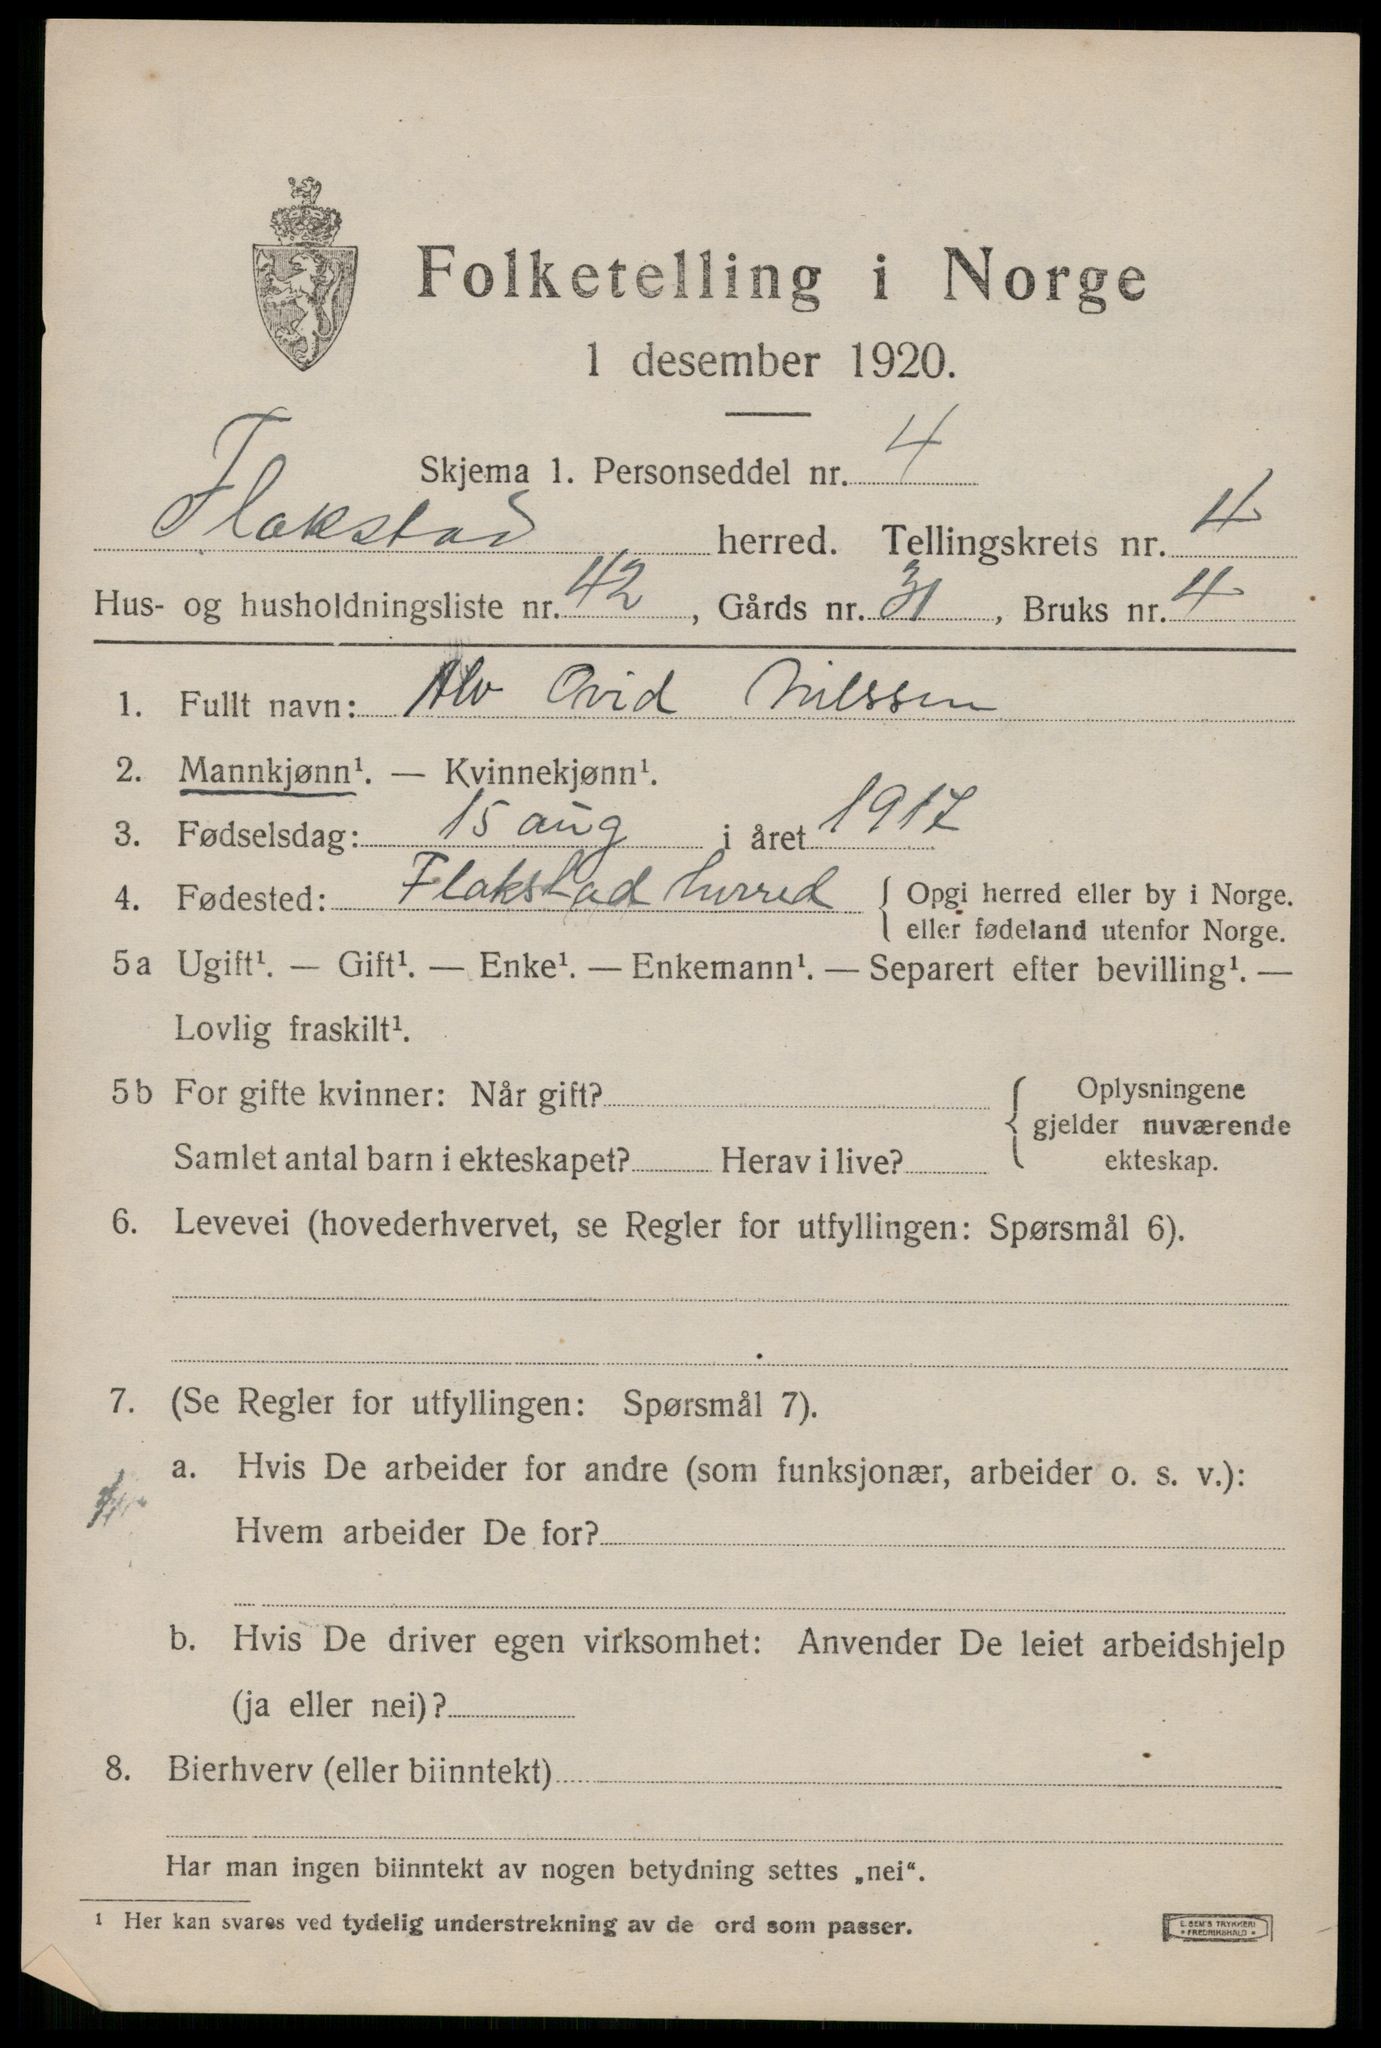 Folketelling i Norge
1 desember 1920.
Skjema 1. Personseddel nr. 4
Flakstad herred. Tellingskrets nr. 4
Hus- og husholdningsliste nr. 42, Gårds nr. 31, Bruks nr. 4
1. Fullt navn: Alv Ovid Nilssen
2. Mannkjønn¹. — Kvinnekjønn¹.
3. Fødselsdag: 15 aug i året 1917
4. Fødested: Flakstad herred { Opgi herred eller by i Norge.
eller fødeland utenfor Norge.
5a Ugift¹. — Gift¹. — Enke¹. — Enkemann¹. — Separert efter bevilling¹. —
Lovlig fraskilt¹.
5b For gifte kvinner: Når gift? { Oplysningene
gjelder nuværende
Samlet antal barn i ekteskapet? Herav i live? ekteskap.
6. Levevei (hovederhvervet, se Regler for utfyllingen: Spørsmål 6).
7. (Se Regler for utfyllingen: Spørsmål 7).
a. Hvis De arbeider for andre (som funksjonær, arbeider o. s. v.):
Hvem arbeider De for?
b. Hvis De driver egen virksomhet: Anvender De leiet arbeidshjelp
(ja eller nei)?
8. Bierhverv (eller biinntekt)
Har man ingen biinntekt av nogen betydning settes „nei“.
¹ Her kan svares ved tydelig understrekning av de ord som passer.
E. SEM'S TRYKKERI
FREDRIKSHALD